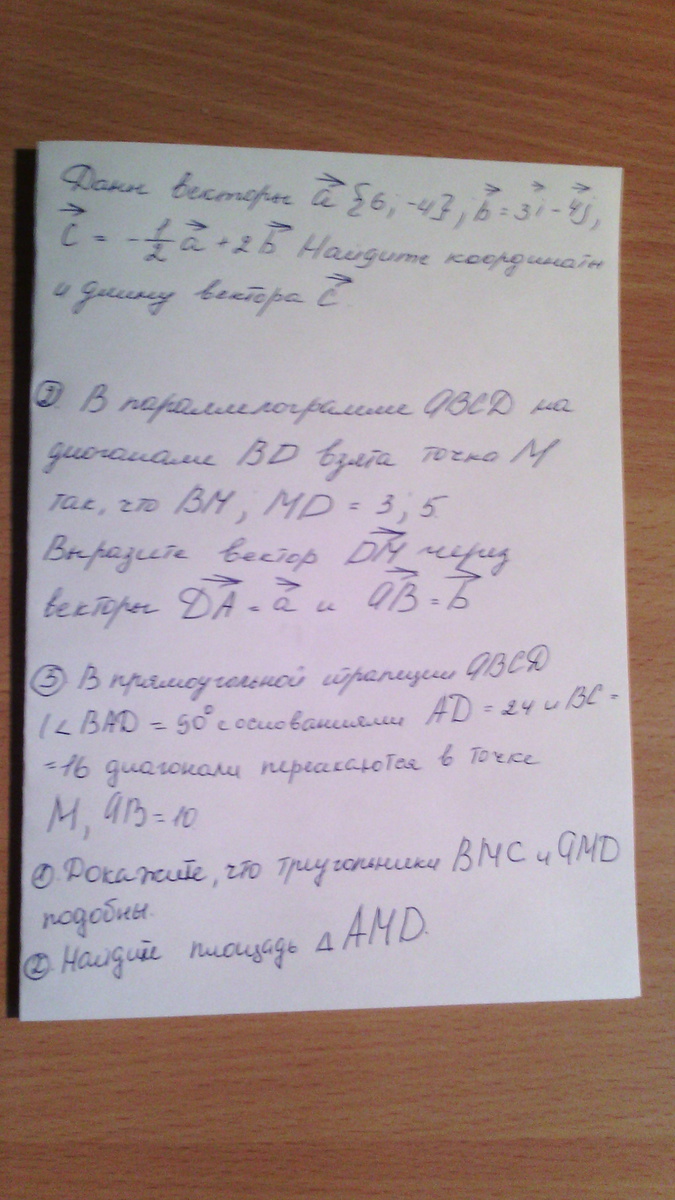 Даны векторы a⃗ {6; -4}, b⃗ = 3i⃗ - 4j⃗,
c⃗ = -1/2 a⃗ + 2b⃗ Найдите координаты
и длину вектора c⃗.
② В параллелограмме ABCD на
диогонали BD взята точка M
так, что BM ; MD = 3 ; 5.
Выразите вектор DM⃗ через
векторы DA⃗ = a⃗ и AB⃗ = b⃗
③ В прямоугольной трапеции ABCD
(∠ BAD = 90° с основаниями AD = 24 и BC =
=16 диагонали пересекаются в точке
M, AB = 10
①. Докажите, что триугольники BMC и AMD
подобны.
②. Найдите площадь △ AMD.